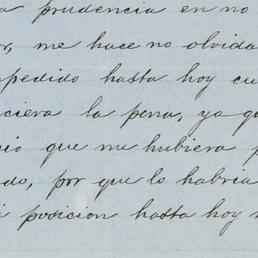 a prudencia en no
r, me hace no olvida
pedido hasta hoy cu
ciera la pena, ya q
io que me hubiera p
do, por que lo habria
i posicion hasta hoy